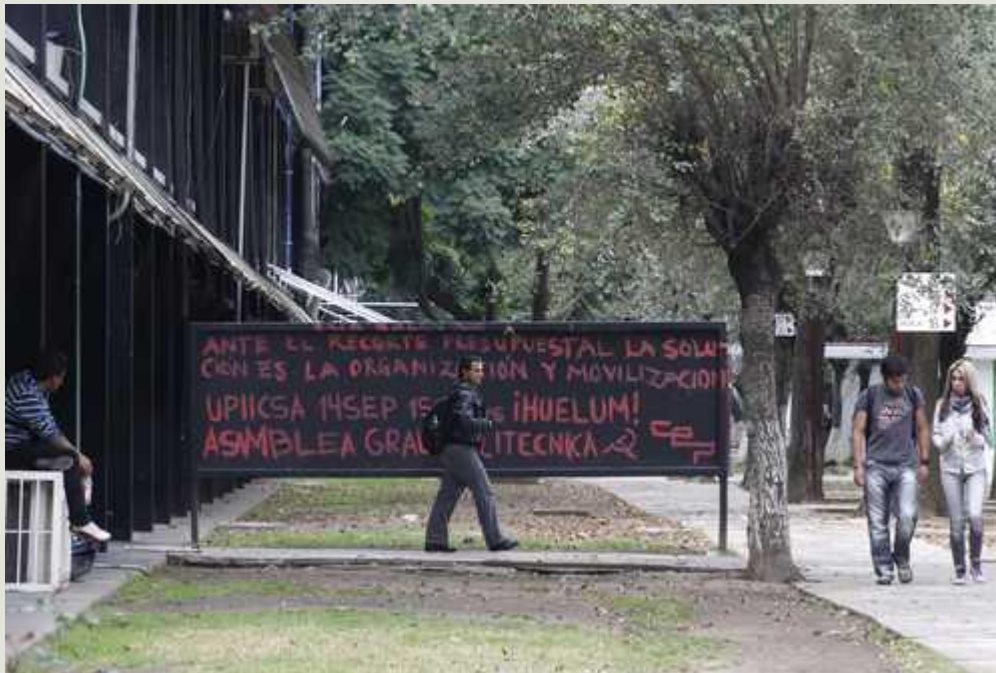 ANTE EL RECORTE PRESUPUESTAL LA SOLU-
CIÓN ES LA ORGANIZACIÓN Y MOVILIZACIÓN
UPIICSA 14SEP 15 ¡HUELUM!
ASAMBLEA GRAL